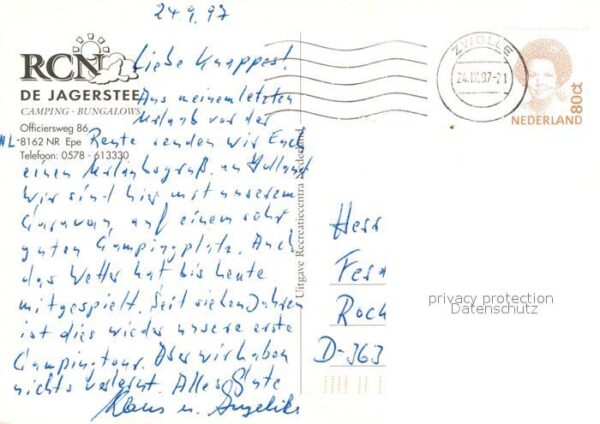 24.9.97
RCN
DE JAGERSTEE
CAMPING - BUNGALOWS
Officiersweg 86
NL-8162 NR Epe
Telefoon: 0578 - 613330
Liebe Knappes!
Aus meinem letzten
Urlaub vor der
Rente senden wir Euch
einen Urlaubsgruß an Holland
Wir sind hier mit unserem
Caravan auf einem sehr
guten Campingplatz. Auch
das Wetter hat bis heute
mitgespielt. Seit sieben Jahren
ist dies wieder unsere erste
Campingtour. Aber wir haben
nichts verlernt. Alles Gute
Klaus u. Angelika
Uitgave Recreatiecentra Nederland
ZWOLLE
24.IX.97-21
NEDERLAND
80ct
Herr
Fern
Roch
D-363
privacy protection
Datenschutz